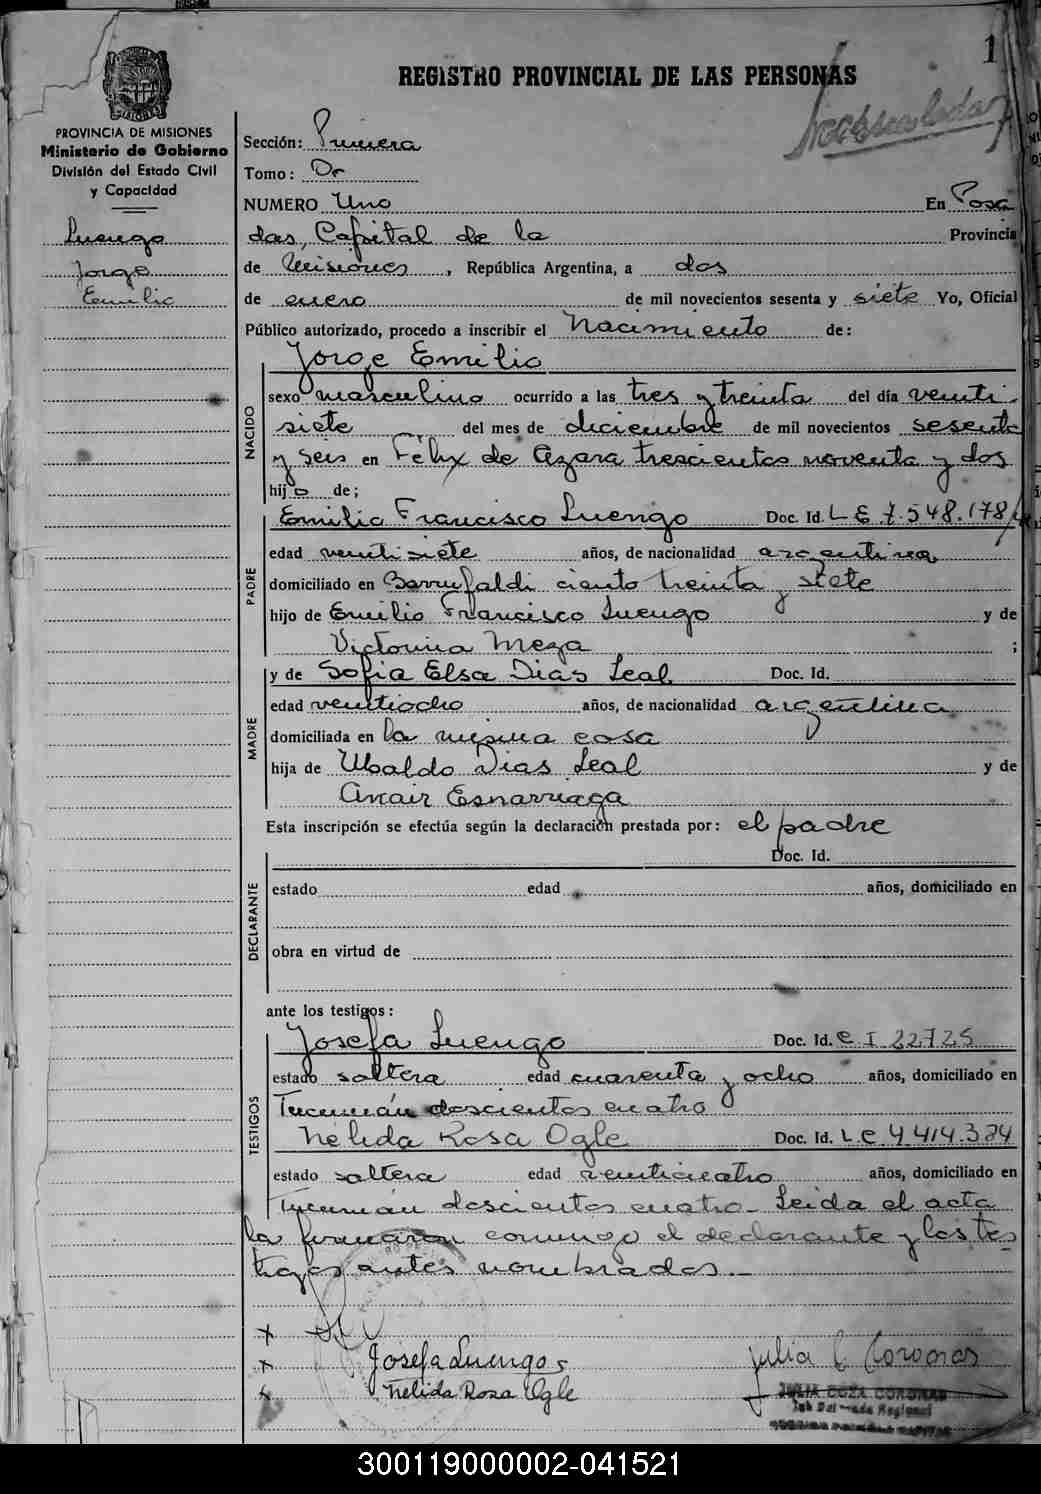 1
REGISTRO PROVINCIAL DE LAS PERSONAS
PROVINCIA DE MISIONES
Ministerio de Gobierno
División del Estado Civil
y Capacidad
Luengo
Jorge
Emilio
Sección: Primera
Tomo: Dr
NUMERO Uno En Posa
das, Capital de la Provincia
de Misiones, República Argentina, a dos
de enero de mil novecientos sesenta y siete Yo, Oficial
Público autorizado, procedo a inscribir el Nacimiento de:
NACIDO
Jorge Emilio
sexo masculino ocurrido a las tres y treinta del día veinti
siete del mes de diciembre de mil novecientos sesenta
y seis en Félix de Azara trescientos noventa y dos
hijo de;
PADRE
Emilio Francisco Luengo Doc. Id. L E 7.548.178
edad veintisiete años, de nacionalidad argentina
domiciliado en Barrufaldi ciento treinta y siete
hijo de Emilio Francisco Luengo y de
Victorina Meza ;
MADRE
y de Sofia Elsa Dias Leal Doc. Id.
edad veintiocho años, de nacionalidad argentina
domiciliada en la misma casa
hija de Ubaldo Dias Leal y de
Anair Esnarriaga
Esta inscripción se efectúa según la declaración prestada por: el padre
DECLARANTE
Doc. Id.
estado edad años, domiciliado en
obra en virtud de
ante los testigos:
TESTIGOS
Josefa Luengo Doc. Id. C I 22725
estado soltera edad cuarenta y ocho años, domiciliado en
Tucumán doscientos cuatro
Nelida Rosa Ogle Doc. Id. L C 4.414.324
estado soltera edad veinticuatro años, domiciliado en
Tucumán doscientos cuatro - Leida el acta
la firmaron conmigo el declarante y los tes
tigos antes nombrados.-
x
x Josefa Luengo
x Nelida Rosa Ogle
Julia C Coronas
JULIA COZA CORONAS
300119000002-041521